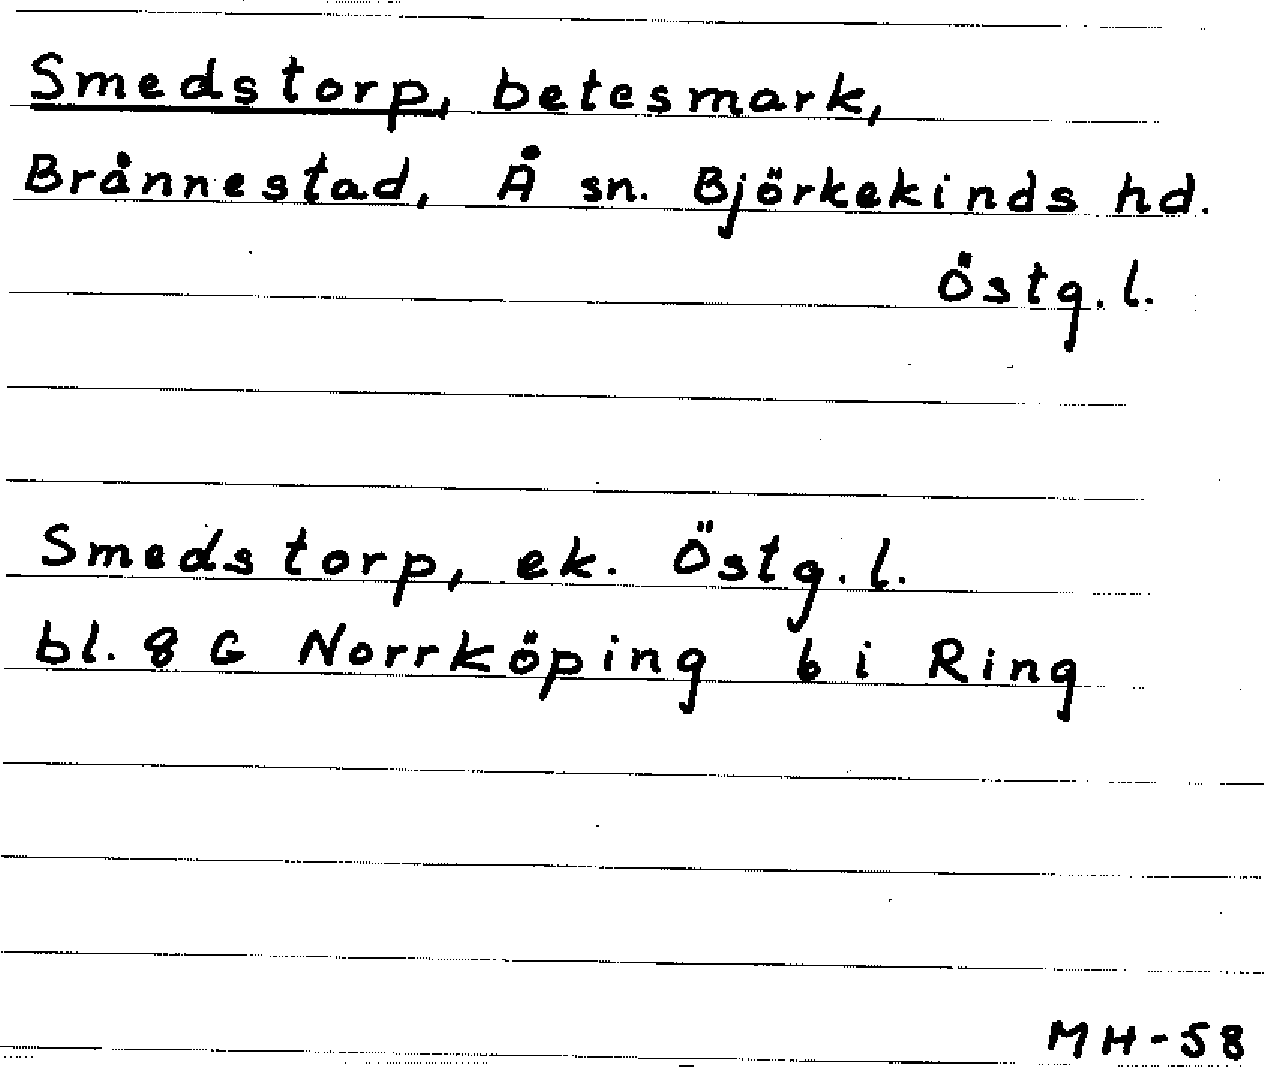 Smedstorp, betesmark,
Brånnestad, Å sn. Björkekinds hd.
Östg. l.
Smedstorp, ek. Östg. l.
bl. 8 G Norrköping 6 i Ring
MH-58